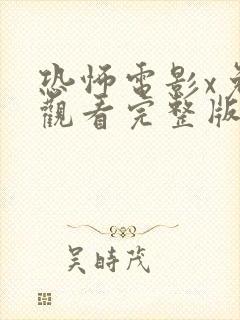 恐怖電影x免
觀看完整版
吴時茂